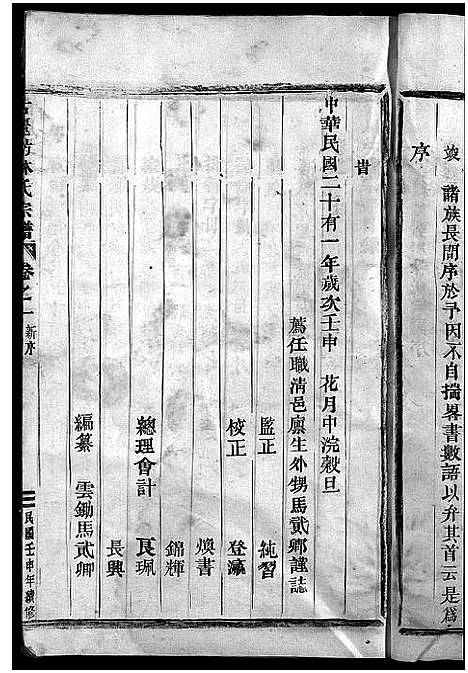 竣　諸族長問序於予因不自揣畧書數語以弁其首云是爲
序
昔
中華民國二十有一年歲次壬申　花月中浣穀旦
薦任職清邑廪生外甥馬貳卿謹誌
監正　純習
校正　登瀛
煥書
錦輝
總理會計　艮珮
長興
編纂　雲鋤馬貳卿
林氏宗譜　卷之一　新序　民國壬申年續修